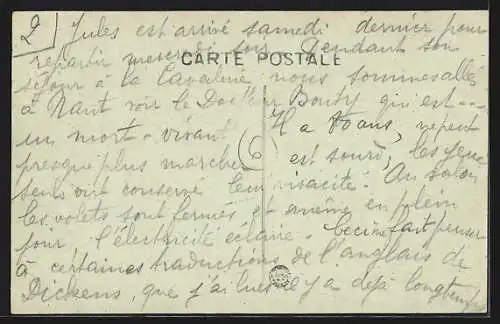 2
Jules est arrivé samedi dernier pour
repartir mercredi soir. Pendant son
CARTE POSTALE
séjour à la Cavalerie nous sommes allés
à Nant voir le Docteur Bouty qui est
un mort-vivant. Il a 80 ans, ne peut
presque plus marcher (6) est sourd, les yeux
seuls ont conservé leur vivacité. Au salon
les volets sont fermés et même en plein
jour l'électricité éclaire. Ceci me fait penser
à certaines traductions de l'anglais de
Dickens, que j'ai lues il y a déjà longtemps